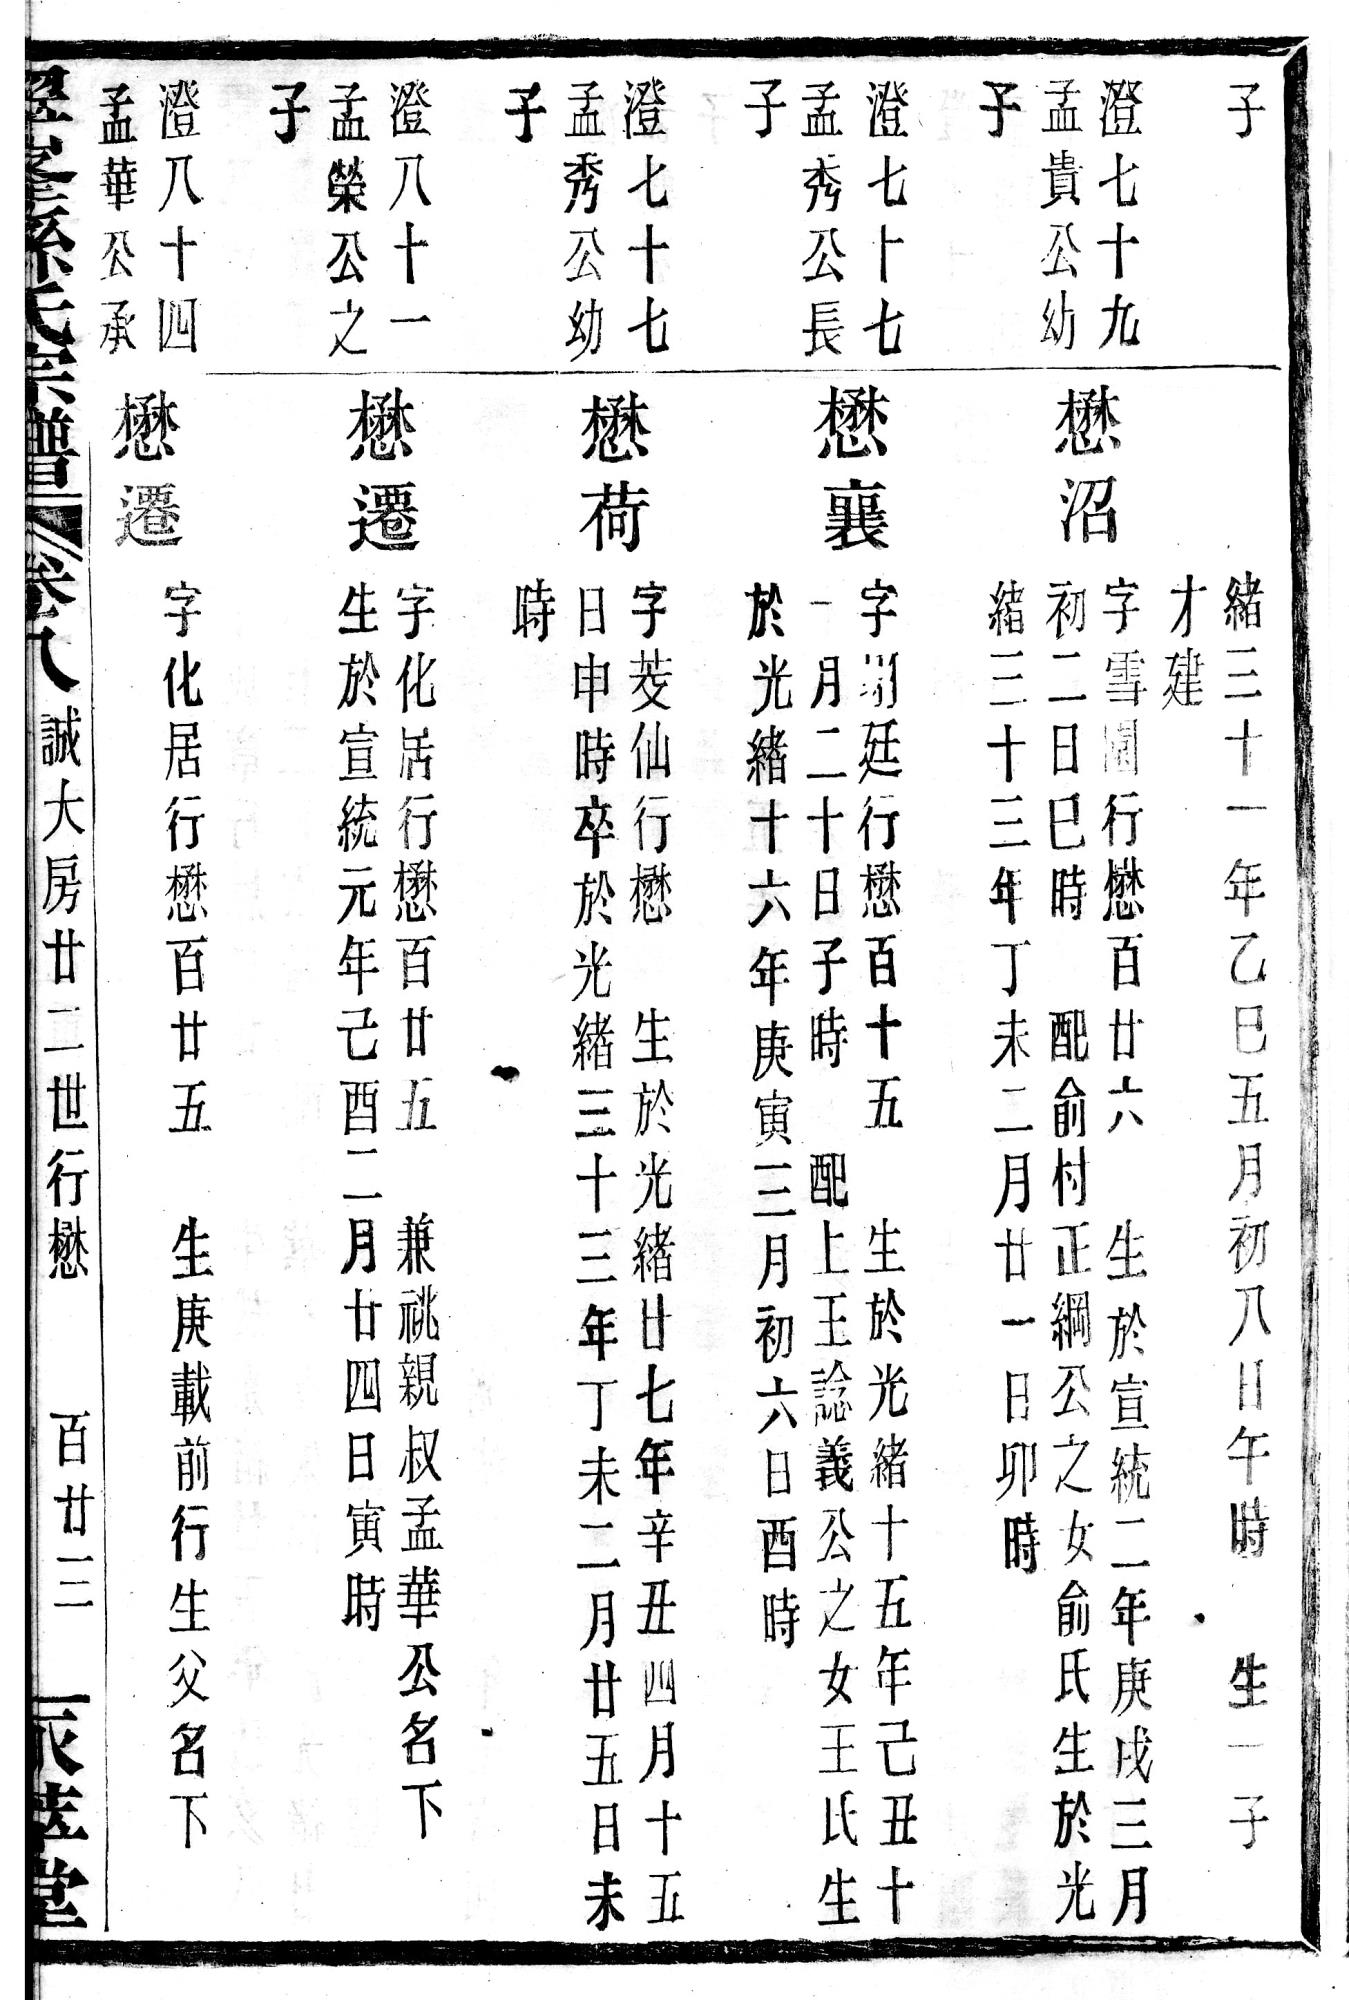 子
緒三十一年乙巳五月初八日午時　生一子
才建
澄七十九
孟貴公幼
子
懋沼
字雪園行懋百廿六　生於宣統二年庚戌三月
初二日巳時　配俞村正綱公之女俞氏生於光
緒三十三年丁未二月廿一日卯時
澄七十七
孟秀公長
子
懋襄
字　廷行懋百十五　生於光緒十五年己丑十
一月二十日子時　配上王諗義公之女王氏生
於光緒十六年庚寅三月初六日酉時
澄七十七
孟秀公幼
子
懋荷
字茭仙行懋　生於光緒廿七年辛丑四月十五
日申時卒於光緒三十三年丁未二月廿五日未
時
澄八十一
孟榮公之
子
懋遷
字化居行懋百廿五　兼祧親叔孟華公名下
生於宣統元年己酉二月廿四日寅時
澄八十四
孟華公承
懋遷
字化居行懋百廿五　生庚載前行生父名下
孫氏宗譜　卷八　誠大房廿二世行懋　百廿三　堂